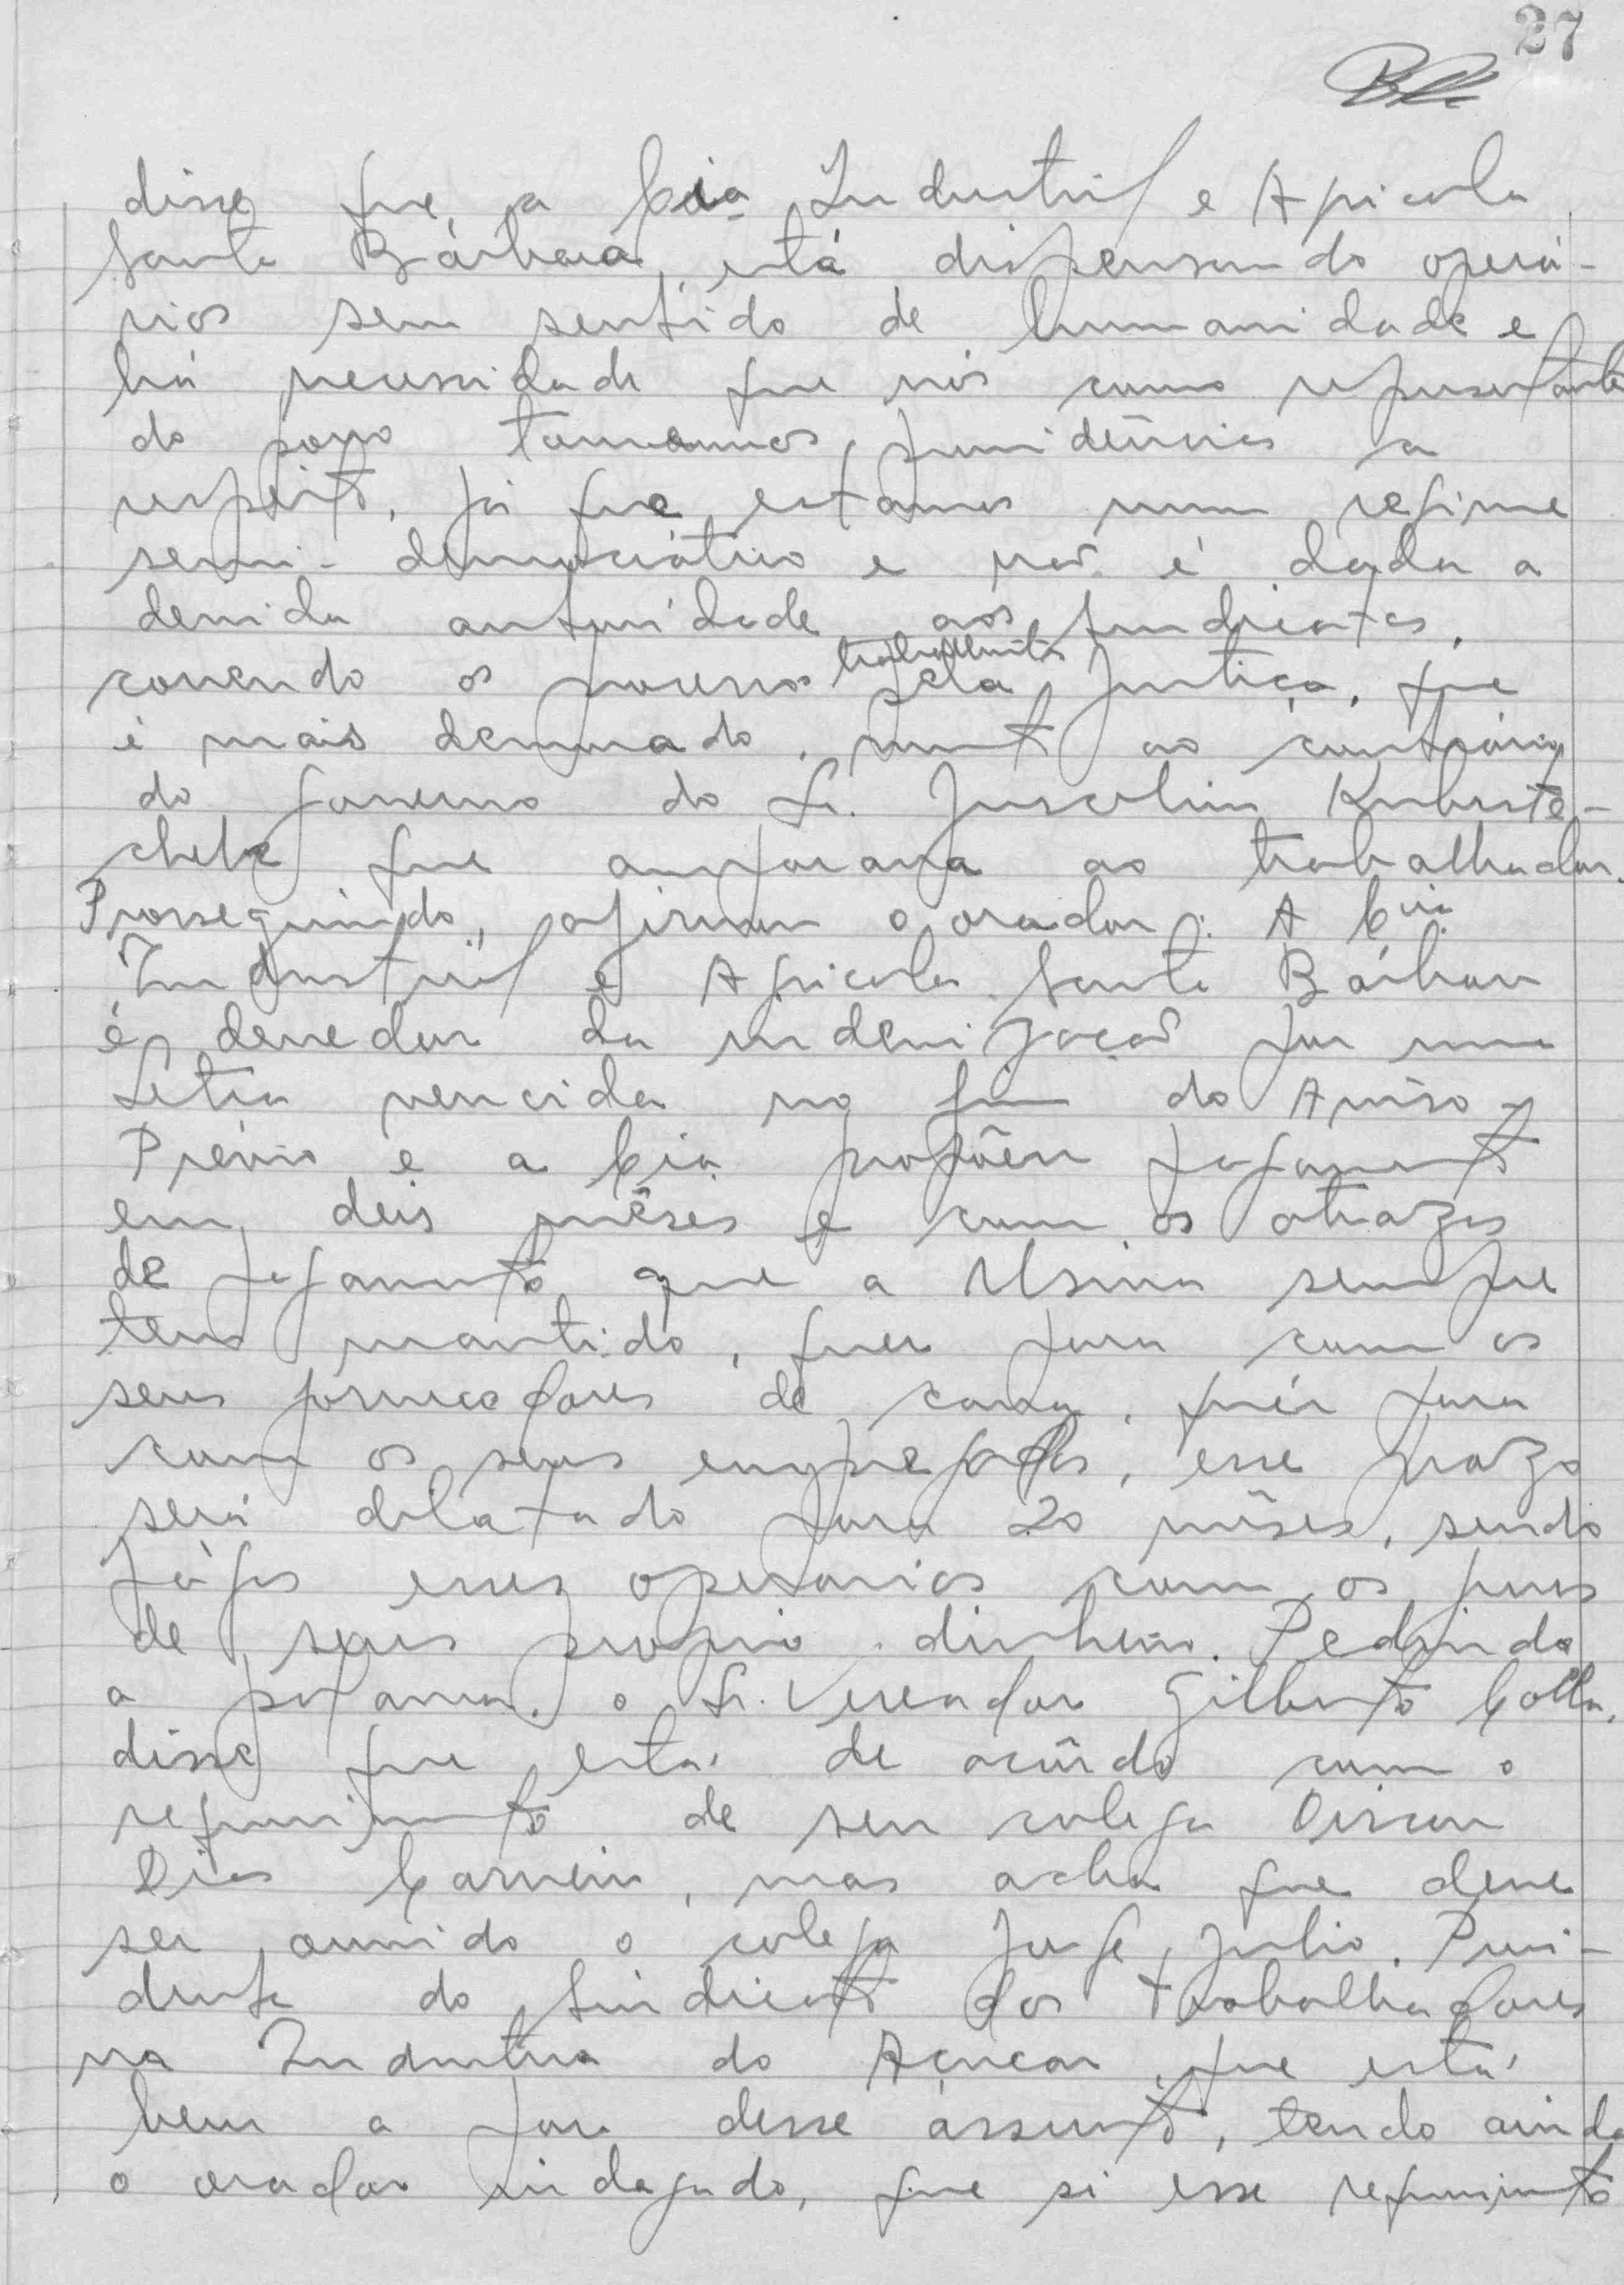 27
disse que a Cia Industrial e Agricola
Santa Bárbara, está dispensando operá-
rios sem sentido de humanidade e
há necessidade que nós como representantes
do povo tomemos providências a
respeito, já que estamos num regime
semi-democrático e não é dada a
devida autoridade aos Sindicatos,
correndo os processos trabalhista pela Justiça, que
é mais demorado, muito ao contrário
do governo do Sr. Juscelino Kubist-
chek que amparava ao trabalhador.
Prosseguindo, afirmou o orador: A Cia
Industrial e Agricola Santa Bárbara
é devedor da indenização por uma
Letra vencida no fim do Aviso-
Prévio e a Cia propõem pagamento
em deis mêses e com os atrazos
de pagamento que a Usina sempre
tem mantido, quer para com os
seus fornecedores de cana, quér para
com os seus empregados, esse prazo
será dilatado para 20 mêses, sendo
págos esses operarios com os juros
de seus proprio dinheiro. Pedindo
a palavra, o Sr. Vereador Gilberto Colla,
disse que está de acôrdo com o
requerimento de seu colega Dirceu
Dias Carneiro, mas acha que deve
ser ouvido o colega Jorge Julio, Presi-
dente do Sindicato dos Trabalhadores
na Industria do Açucar que está
bem a par desse assunto, tendo ainda
o orador indagado, que si esse requerimento